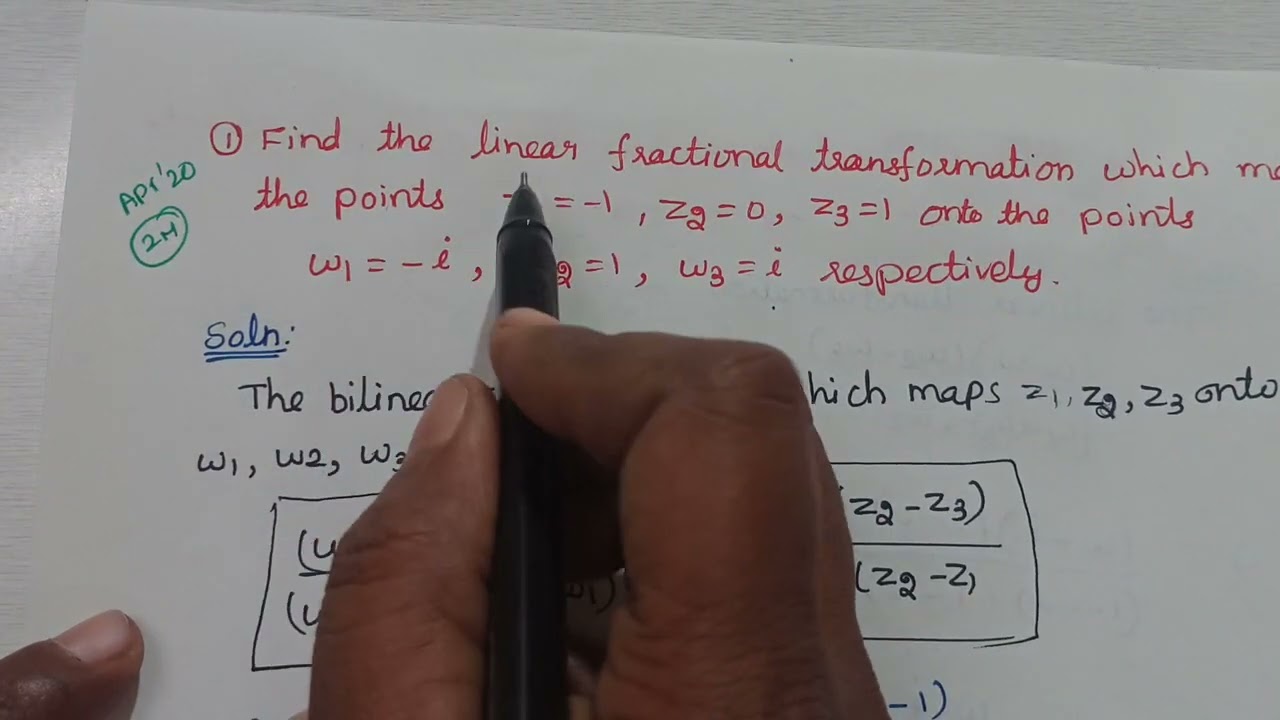 ① Find the linear fractional transformation which
Apr'20
the points = -1 , z2 = 0, z3 = 1 onto the points
2M
w1 = -i , 2 = 1 , w3 = i respectively.
Soln:
The which maps z1, z2, z3 onto
w1, w2, w3
(z2 - z3)
( w1) (z2 - z1
- 1)